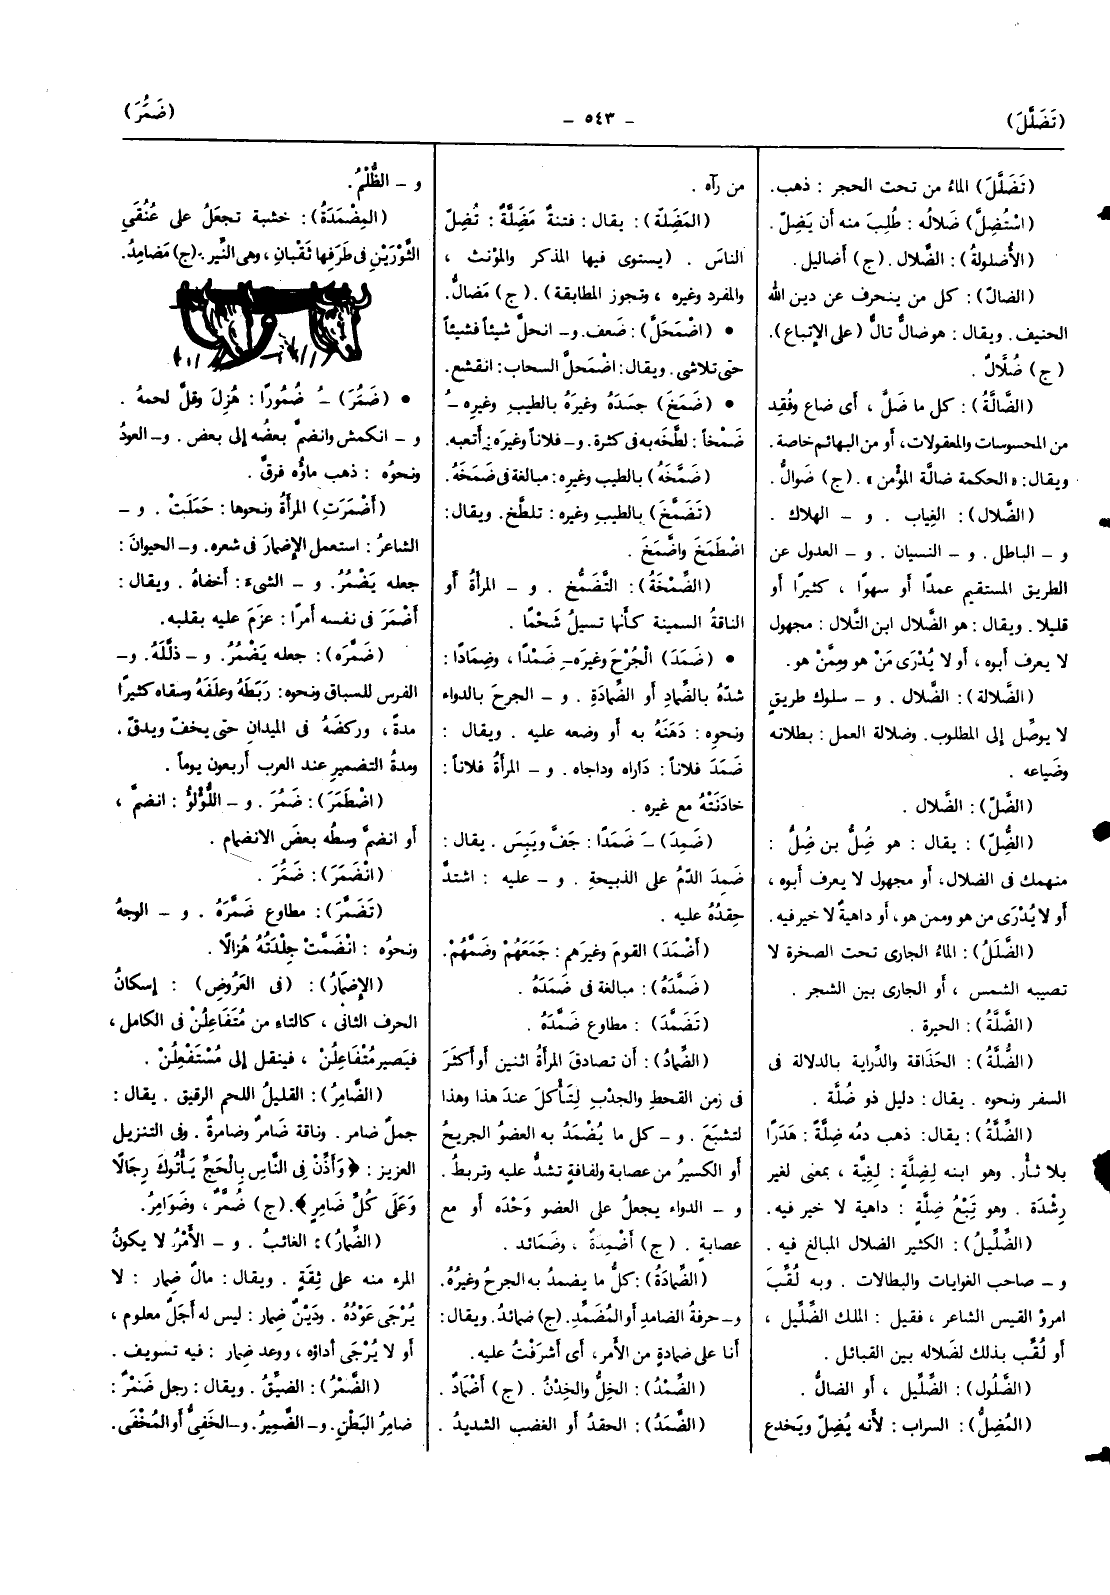 (تَضَلَّلَ)
– ٥٤٣ –
(ضَمُرَ)
(تَضَلَّلَ) الماءُ من تحت الحجر : ذهب.
(اسْتُضِلَّ) ضَلالُه : طُلِبَ منه أن يَضِلّ .
(الأُضلولةُ) : الضَّلال . (ج) أضاليل .
(الضالّ) : كل من ينحرف عن دين الله
الحنيف . ويقال : هو ضالٌّ تالٌّ (على الإتباع).
(ج) ضُلَّالٌ .
(الضَّالَّةُ) : كل ما ضَلَّ ، أى ضاع وفُقِد
من المحسوسات والمعقولات، أو من البهائم خاصة .
ويقال : «الحكمة ضالَّة المؤمن» . (ج) ضَوالُّ .
(الضَّلال) : الغِياب . و – الهلاك .
و – الباطل . و – النسيان . و – العدول عن
الطريق المستقيم عمدًا أو سهوًا ، كثيرًا أو
قليلا . ويقال : هو الضَّلال ابن التَّلال : مجهول
لا يعرف أبوه ، أو لا يُدْرَى مَنْ هو ومِمَّنْ هو.
(الضَّلالة) : الضَّلال . و – سلوك طريقٍ
لا يوصِّل إلى المطلوب . وضلالة العمل : بطلانه
وضَياعه .
(الضَّلّ) : الضَّلال .
(الضُّلّ) : يقال : هو ضُِلُّ بن ضُِلُّ :
منهمك فى الضلال، أو مجهول لا يعرف أبوه ،
أو لا يُدْرَى من هو وممن هو ، أو داهيةٌ لا خير فيه .
(الضَّلَلُ) : الماءُ الجارى تحت الصخرة لا
تصيبه الشمس ، أو الجارى بين الشجر .
(الضَّلَّةُ) : الحيرة .
(الضُّلَّةُ) : الحَذَاقة والدِّراية بالدلالة فى
السفر ونحوه . يقال : دليل ذو ضُلَّة .
(الضِّلَّةُ) : يقال : ذهب دمُه ضِلَّةً : هَدَرًا
بلا ثأر . وهو ابنه لِضِلَّةٍ : لِغِيَّة ، بمعنى لغير
رِشْدَة . وهو تِبْعُ ضِلَّة : داهية لا خير فيه .
(الضِّلِّيلُ) : الكثير الضلال المبالغ فيه .
و – صاحب الغوايات والبطالات . وبه لُقِّبَ
امروُ القيس الشاعر ، فقيل : الملك الضِّلِّيل ،
أو لُقِّب بذلك لضَلاله بين القبائل .
(الضَّلُول) : الضِّلِّيل ، أو الضالُّ .
(المُضِلُّ) : السراب : لأنه يُضِلّ ويَخدع
من رآه .
(المَضِلّة) : يقال : فتنةٌ مَضِلَّةٌ : تُضِلّ
الناسَ . (يستوى فيها المذكر والمؤنث ،
والمفرد وغيره ، وتجوز المطابقة) . (ج) مَضالُّ.
• (اضْمَحَلَّ) : ضَعف . و – انحلَّ شيئاً فشيئاً
حتى تلاشى . ويقال : اضْمحلَّ السحاب : انقشع .
• (ضَمَخَ) جسَدَهُ وغيرَهُ بالطيبِ وغيرِه –ُ
ضَمْخاً : لطَّخه به فى كثرة . و – فلاناً وغيرَه : أتعبه.
(ضَمَّخَهُ) بالطيب وغيره : مبالغة فى ضَمَخَهُ.
(تَضَمَّخَ) بالطيب وغيره : تلطَّخ . ويقال :
اضْطَمَخَ واضَّمَخَ .
(الضِّمْخَةُ) : التَّضَمُّخ . و – المرأةُ أو
الناقةُ السمينة كأنها تسيلُ شَحْمًا .
• (ضَمَدَ) الْجُرْحَ وغيرَه –ِ ضَمْدًا ، وضِمادًا :
شدّهُ بالضِّمادِ أو الضِّمادَةِ . و – الجرحَ بالدواء
ونحوِه : دَهَنَهُ به أو وضعه عليه . ويقال :
ضَمَدَ فلاناً : دَاراه وداجاه . و – المرأةُ فلاناً :
خادَنَتْهُ مع غيره .
(ضَمِدَ) –َ ضَمَدًا : جَفَّ ويَبِسَ . يقال :
ضَمِدَ الدّمُ على الذبيحةِ . و – عليه : اشتدَّ
حِقدُهُ عليه .
(أضْمَدَ) القومَ وغيرَهم : جَمَعَهُمْ وضَمَّهُمْ.
(ضَمَّدَهُ) : مبالغة فى ضَمَدَهُ .
(تَضَمَّدَ) : مطاوع ضَمَّدَهُ .
(الضِّمادُ) : أن تصادقَ المرأةُ اثنين أو أكثَرَ
فى زمن القحطِ والجدْبِ لِتَأكلَ عند هذا وهذا
لتشبَعَ . و – كل ما يُضْمَدُ به العضوُ الجريحُ
أو الكسيرُ من عصابة ولفافةٍ تشدُّ عليه وتربطُ .
و – الدواء يجعلُ على العضو وَحْدَه أو مع
عصابةٍ . (ج) أضْمِدةٌ ، وضَمائد .
(الضِّمادَةُ) : كلُّ ما يضمد به الجرحُ وغيرُهُ.
و – حرفةُ الضامدِ أو المُضَمِّدِ . (ج) ضمائدُ . ويقال :
أنا على ضِمادةٍ من الأمر، أى أشرَفْتُ عليه .
(الضِّمْدُ) : الخِلُّ والخِدْنُ . (ج) أضْمَادٌ .
(الضَّمَدُ) : الحقدُ أو الغضب الشديدُ .
و – الظُّلْمُ .
(المِضْمَدَةُ) : خشبة تجعَلُ على عُنُقَيِ
الثَّوْرَيْنِ فى طَرَفِها ثَقْبانِ ، وهى النِّير . (ج) مَضامِدُ.
• (ضَمُرَ) –ُ ضُمُورًا : هُزِلَ وقلَّ لحمهُ .
و – انكمش وانضمَّ بعضُه إلى بعض . و – العودُ
ونحوُه : ذهب ماؤه فرقَّ .
(أضْمَرَتِ) المرأةُ ونحوها : حَمَلَتْ . و –
الشاعرُ : استعمل الإضْمارَ فى شعره. و – الحيوانَ :
جعله يَضْمُرُ. و – الشىءَ : أخفاهُ . ويقال :
أضْمَرَ فى نفسه أمرًا : عزَمَ عليه بقلبه.
(ضَمَّرَه) : جعله يَضْمُرُ. و – ذلَّلَهُ. و –
الفرس للسباق ونحوه : رَبَطَهُ وعلَفَهُ وسقاه كثيرًا
مدةً ، وركضَهُ فى الميدان حتى يخفّ ويدقّ .
ومدةُ التضميرِ عند العرب أربعون يوماً .
(اضْطَمَرَ) : ضَمُرَ . و – اللُّؤْلُؤُ : انضمَّ ،
أو انضمَّ وسطُه بعضَ الانضمام .
(انْضَمَرَ) : ضَمُرَ .
(تَضَمَّرَ) : مطاوع ضَمَّرَهُ . و – الوجهُ
ونحوُه : انْضَمَّتْ جِلْدَتُهُ هُزالًا .
(الإضْمَارُ) : (فى العَرُوضِ) : إسكانُ
الحرف الثانى ، كالتاء من مُتَفَاعِلُنْ فى الكامل ،
فيَصير مُتْفَاعِلُنْ ، فينقل إلى مُسْتَفْعِلُنْ .
(الضَّامِرُ) : القليلُ اللحم الرقيق . يقال :
جملٌ ضامر . وناقة ضَامرٌ وضامرةٌ . وفى التنزيل
العزيز : ﴿ وَأَذِّنْ فِى النَّاسِ بِالْحَجِّ يَأْتُوكَ رِجَالًا
وَعَلَى كُلِّ ضَامِرٍ ﴾. (ج) ضُمَّرٌ ، وضَوَامِرُ.
(الضِّمَارُ) : الغائبُ . و – الأمْرُ لا يكونُ
المرء منه على ثِقَةٍ . ويقال : مالٌ ضِمار : لا
يُرْجَى عَوْدُهُ . ودَيْنٌ ضِمار : ليس له أجَلٌ معلوم ،
أو لا يُرْجَى أداؤه ، ووعد ضِمار : فيه تسويف .
(الضَّمْرُ) : الضيِّقُ . ويقال : رجل ضَمْرٌ :
ضامِرُ البَطْنِ . و – الضَّمِيرُ . و – الخَفِىُّ أو المُخْفَى.